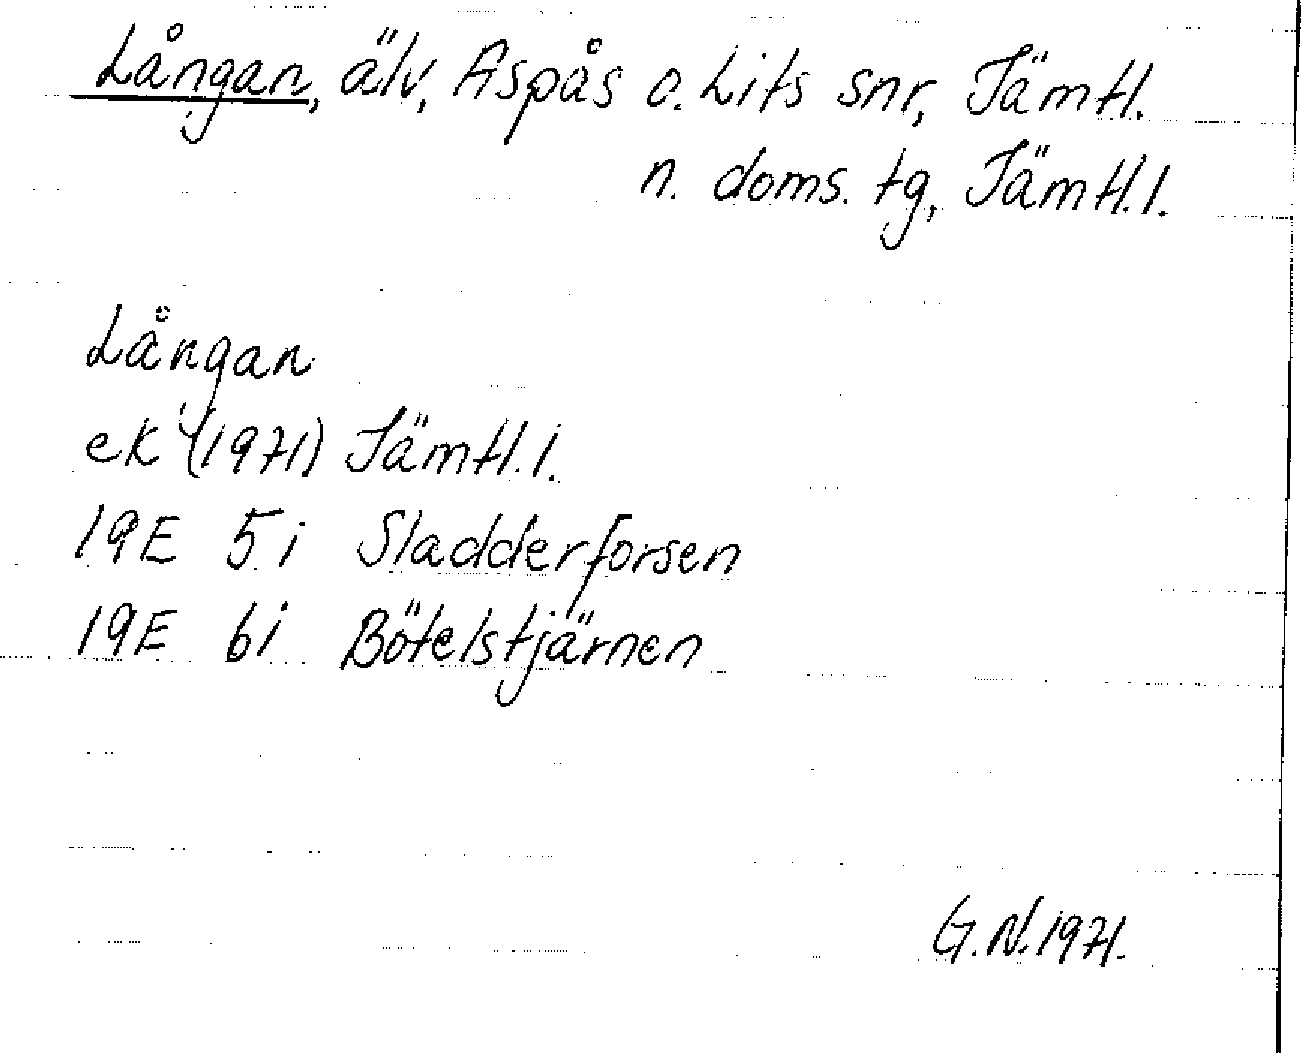 Långan, älv, Aspås o. Lits snr, Jämtl.
n. doms. tg, Jämtl. l.
Långan
ek (1971) Jämtl. l.
19E 5i Sladderforsen
19E 6i Bötelstjärnen
G.N. 1971.